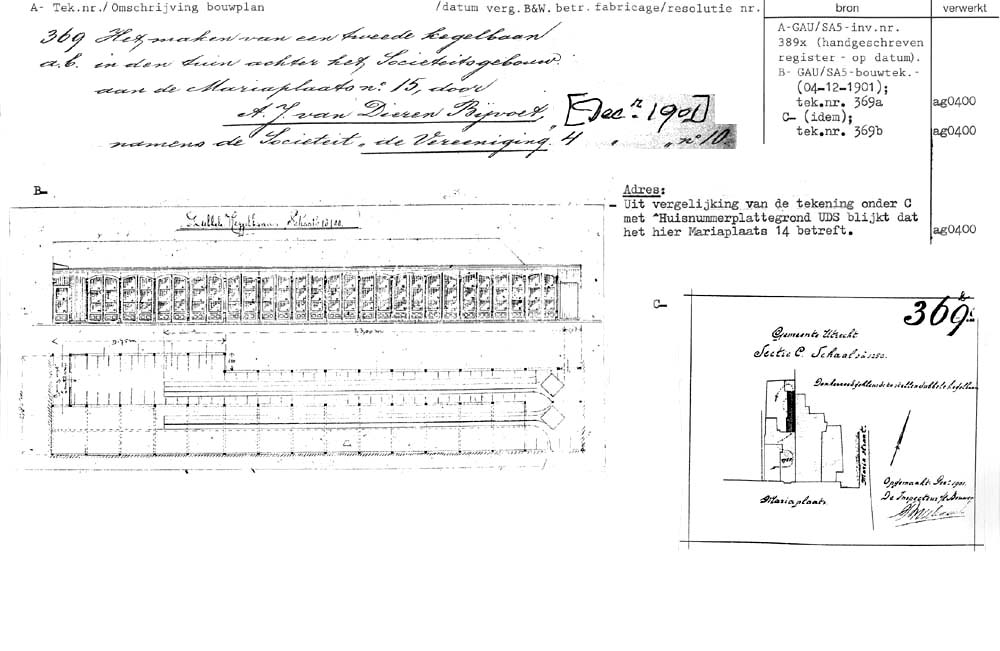 A- Tek.nr./Omschrijving bouwplan /datum verg.B&W. betr. fabricage/resolutie nr. bron verwerkt
369 Het maken van een tweede kegelbaan
a.b. in den tuin achter het Societeitsgebouw
aan de Mariaplaats no. 15, door
A. J. van Dieren Bijvoet,
namens de Societeit "de Vereeniging.
[Decr. 1901]
4 " " no 10.
A-GAU/SA5-inv.nr.
389x (handgeschreven
register - op datum).
B- GAU/SA5-bouwtek.-
(04-12-1901);
tek.nr. 369a ag0400
C- (idem);
tek.nr. 369b ag0400
Adres:
- Uit vergelijking van de tekening onder C
met "Huisnummerplattegrond UDS blijkt dat
het hier Mariaplaats 14 betreft. ag0400
B-
Dubbele Kegelbaan. Schaal
9.75m
C-
369 b.
Gemeente Utrecht
Sectie C. Schaal 1 à 1250.
Donker de dubbele kegelbaan
Maria straat.
Mariaplaats
Opgemaakt Decr. 1901.
De Inspecteur